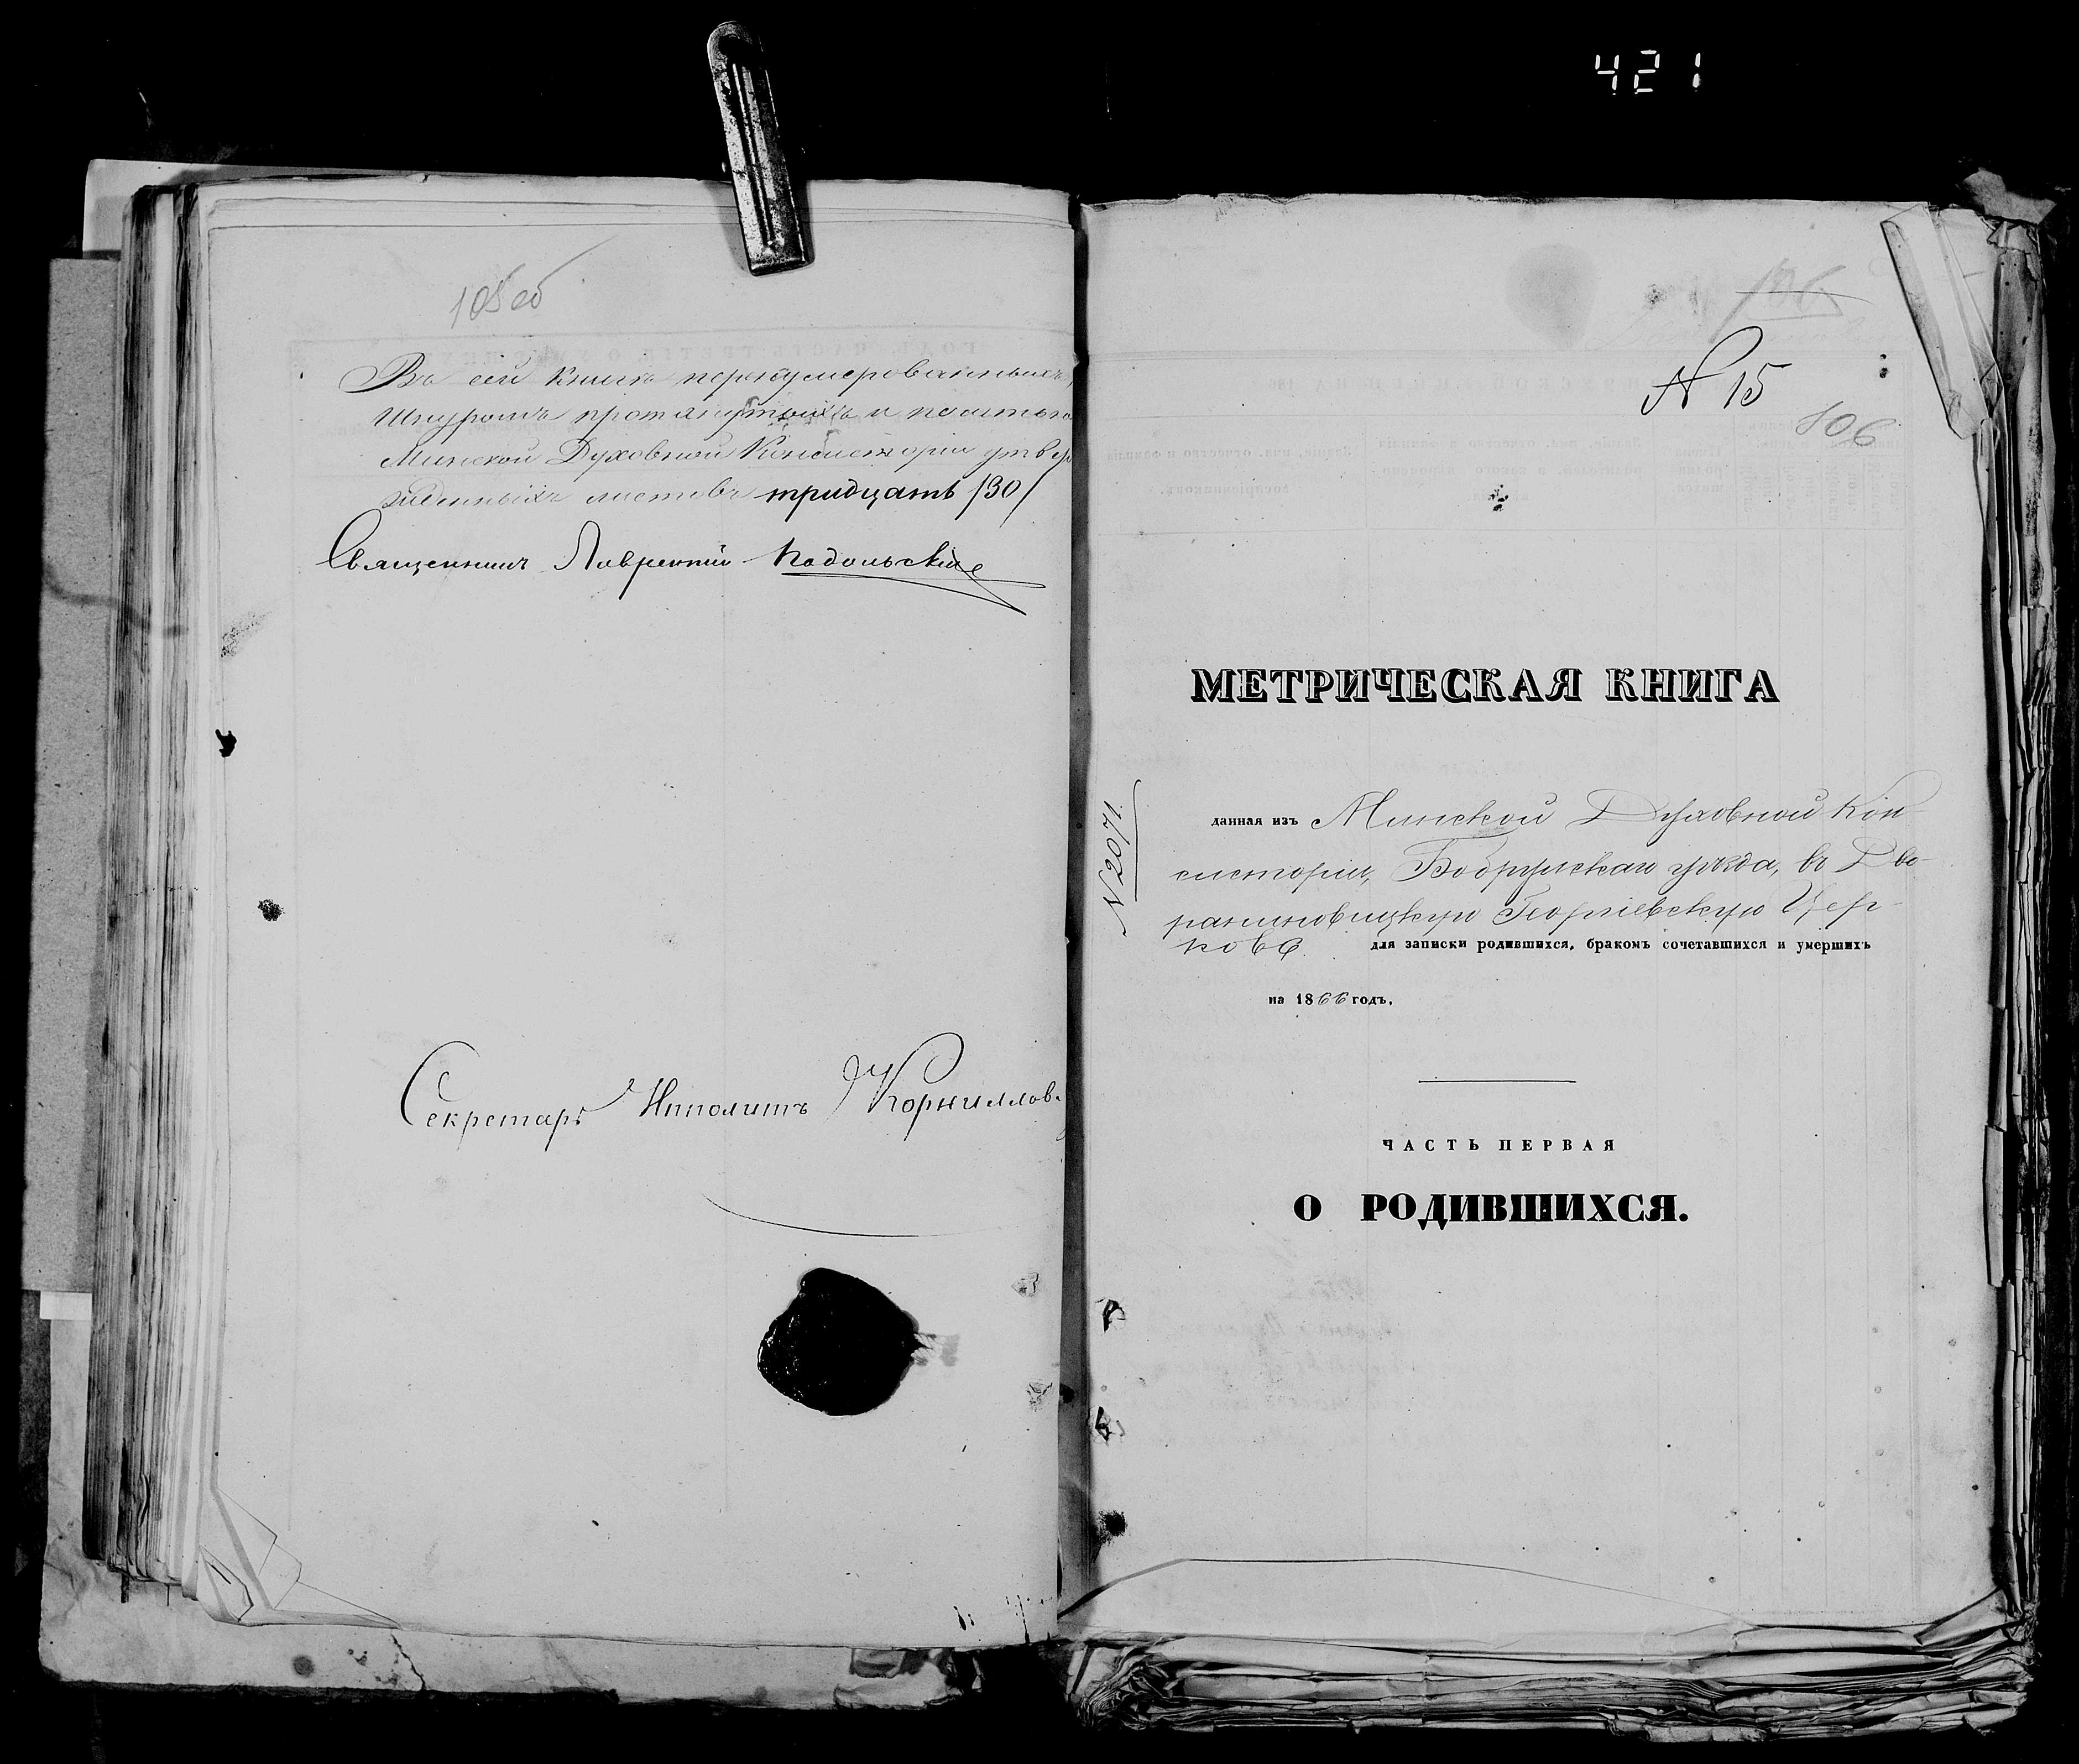 421
105 об
Въ сей книгѣ перенумерованныхъ,
шнуромъ протянутыхъ и печатью
Минской Духовной Консисторіи утвер
жденныхъ листовъ тридцать /30/
Священникъ Лаврентій Подольскій
Секретарь Ипполитъ Корниллов
106
№ 15
106
МЕТРИЧЕСКАЯ КНИГА
№ 2071.
данная изъ Минской Духовной Кон
систоріи, Бобруйскаго уѣзда, въ Дво
раниновицкую Георгіевскую Цер-
ковь для записки родившихся, бракомъ сочетавшихся и умершихъ
на 1866 годъ.
ЧАСТЬ ПЕРВАЯ
О РОДИВШИХСЯ.